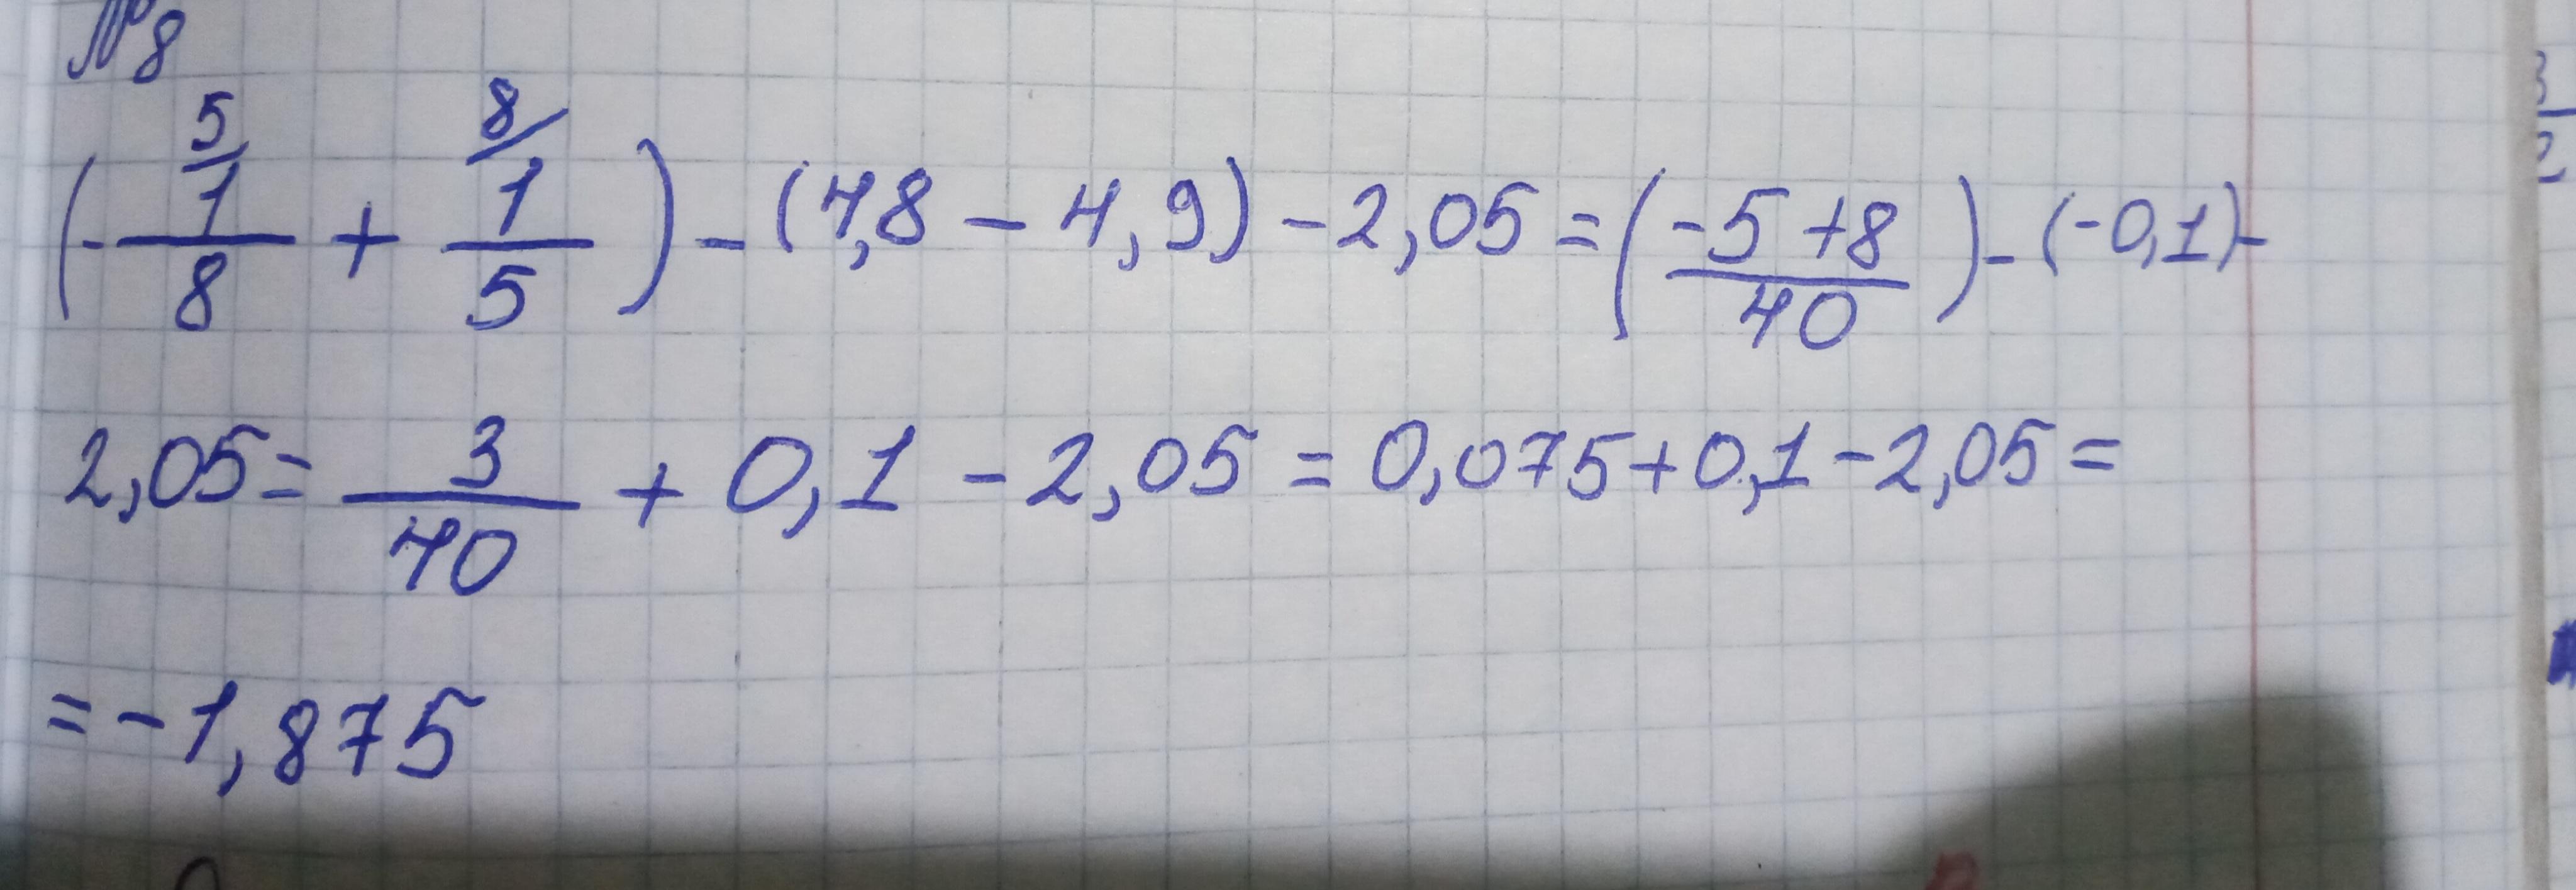 №8
(-5/1/8 + 8/1/5) - (4,8 - 4,9) - 2,05 = (-5+8/40) - (-0,1) -
2,05 = 3/40 + 0,1 - 2,05 = 0,075 + 0,1 - 2,05 =
= -1,875